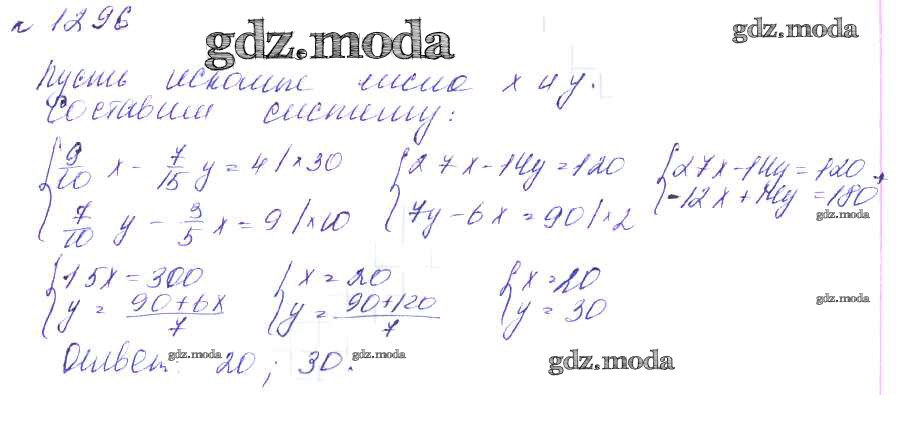 № 1296
gdz.moda
gdz.moda
Пусть искомые числа x и y.
Составим систему:
{ 9/10 x - 7/15 y = 4 | ×30   { 27x - 14y = 120   { 27x - 14y = 120 +
{ 7/10 y - 3/5 x = 9 | ×10   { 7y - 6x = 90 | ×2   { -12x + 14y = 180
gdz.moda
{ 15x = 300   { x = 20   { x = 20
{ y = (90+6x)/7   { y = (90+120)/7   { y = 30
gdz.moda
Ответ: 20; 30.
gdz.moda
gdz.moda
gdz.moda